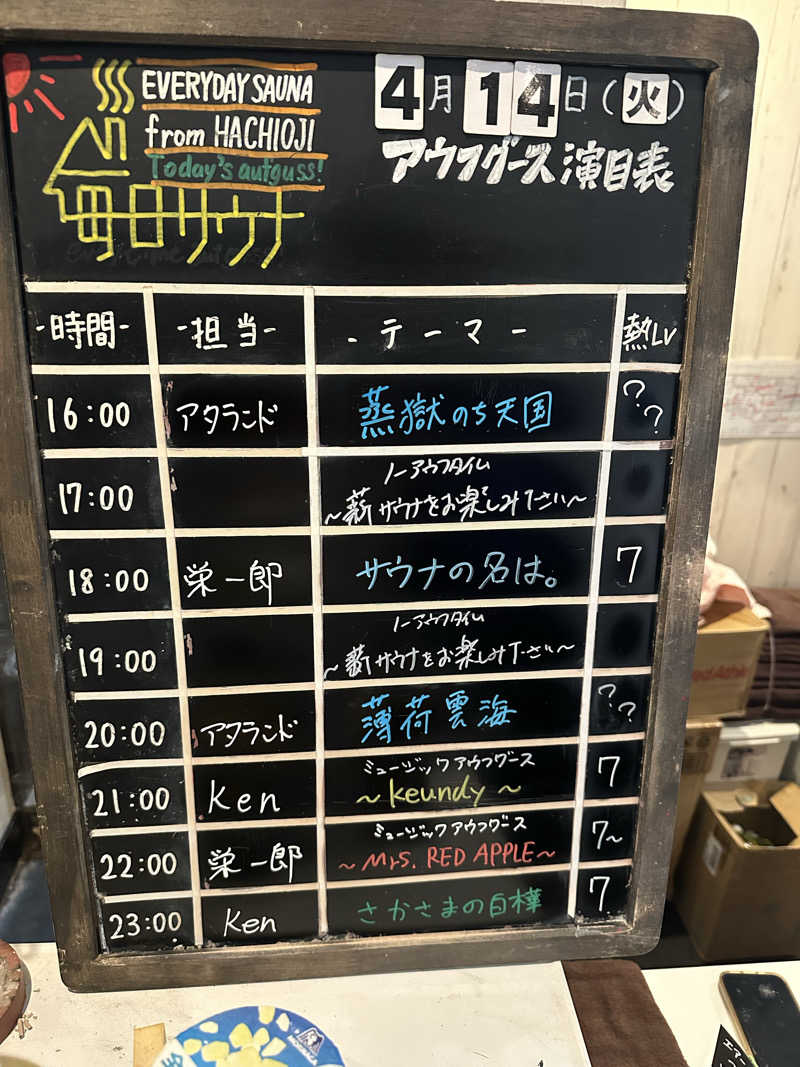 EVERYDAY SAUNA
from HACHIOJI
Today's aufguss!
毎日サウナ
4月14日(火)
アウフグース演目表
-時間- -担当- -テーマー 熱LV
16:00 アタランド 蒸獄のち天国 ??
17:00 ノーアウフタイム
～薪サウナをお楽しみ下さい～
18:00 栄一郎 サウナの名は。 7
19:00 ノーアウフタイム
～薪サウナをお楽しみ下さい～
20:00 アタランド 薄荷雲海 ??
21:00 Ken ミュージックアウフグース
～keundy～ 7
22:00 栄一郎 ミュージックアウフグース
～Mrs. RED APPLE～ 7~
23:00 Ken さかさまの白樺 7